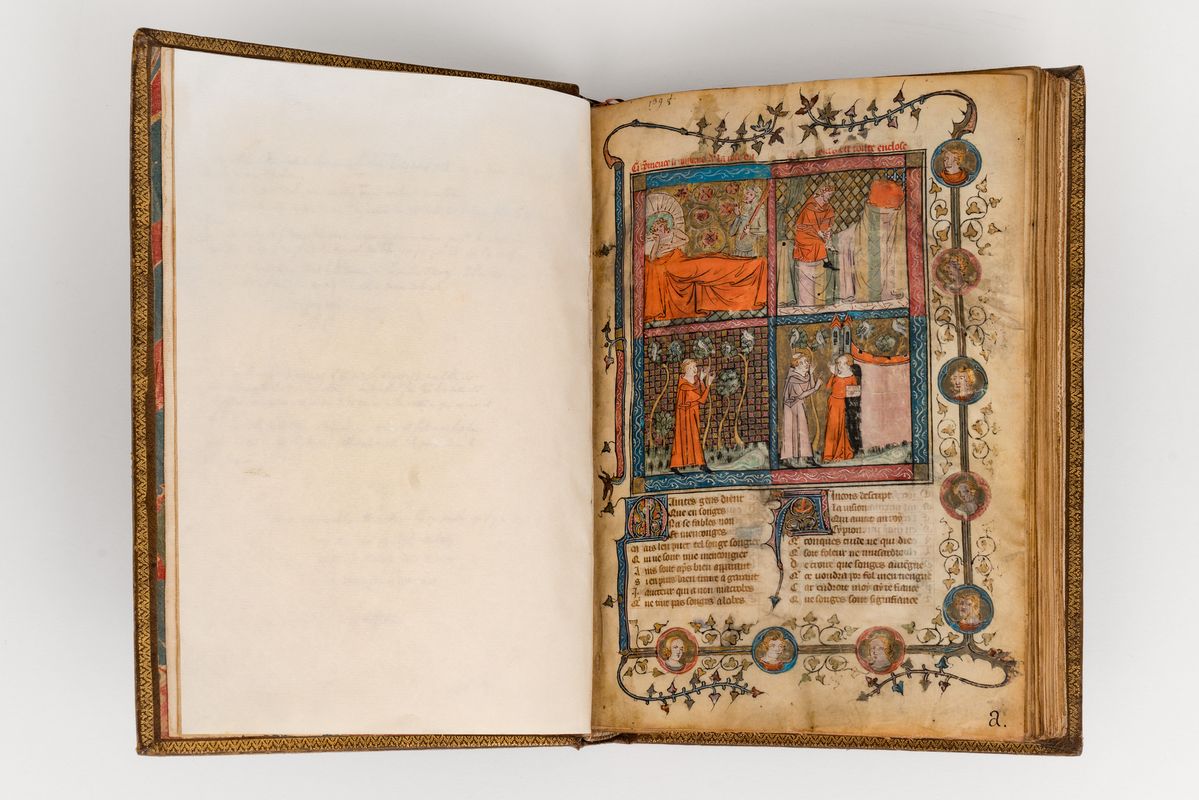 1395
Ci commence le de la rose est toute enclose
Maintes gens dient
Que en songes
Na se fables non
et menconges
M ais len puet tel songe songier
Q ui ne sont mie mencongier
A ins sont aps bien apparant
S i en puis bien traire a garant
J . aucteur qui a non macrobes
Q ui ne tint pas songes a lobes
Aincois descript
la vision
Qui avint au roy
Cypion
Q iconques cuide ne qui die
Q soit foleur ne musardie
D e croire que songes aviegne
Q ce vondra por fol men tiengne
C ar endroit moy ay ie fiance
Q ue songes sont signifiance
a.